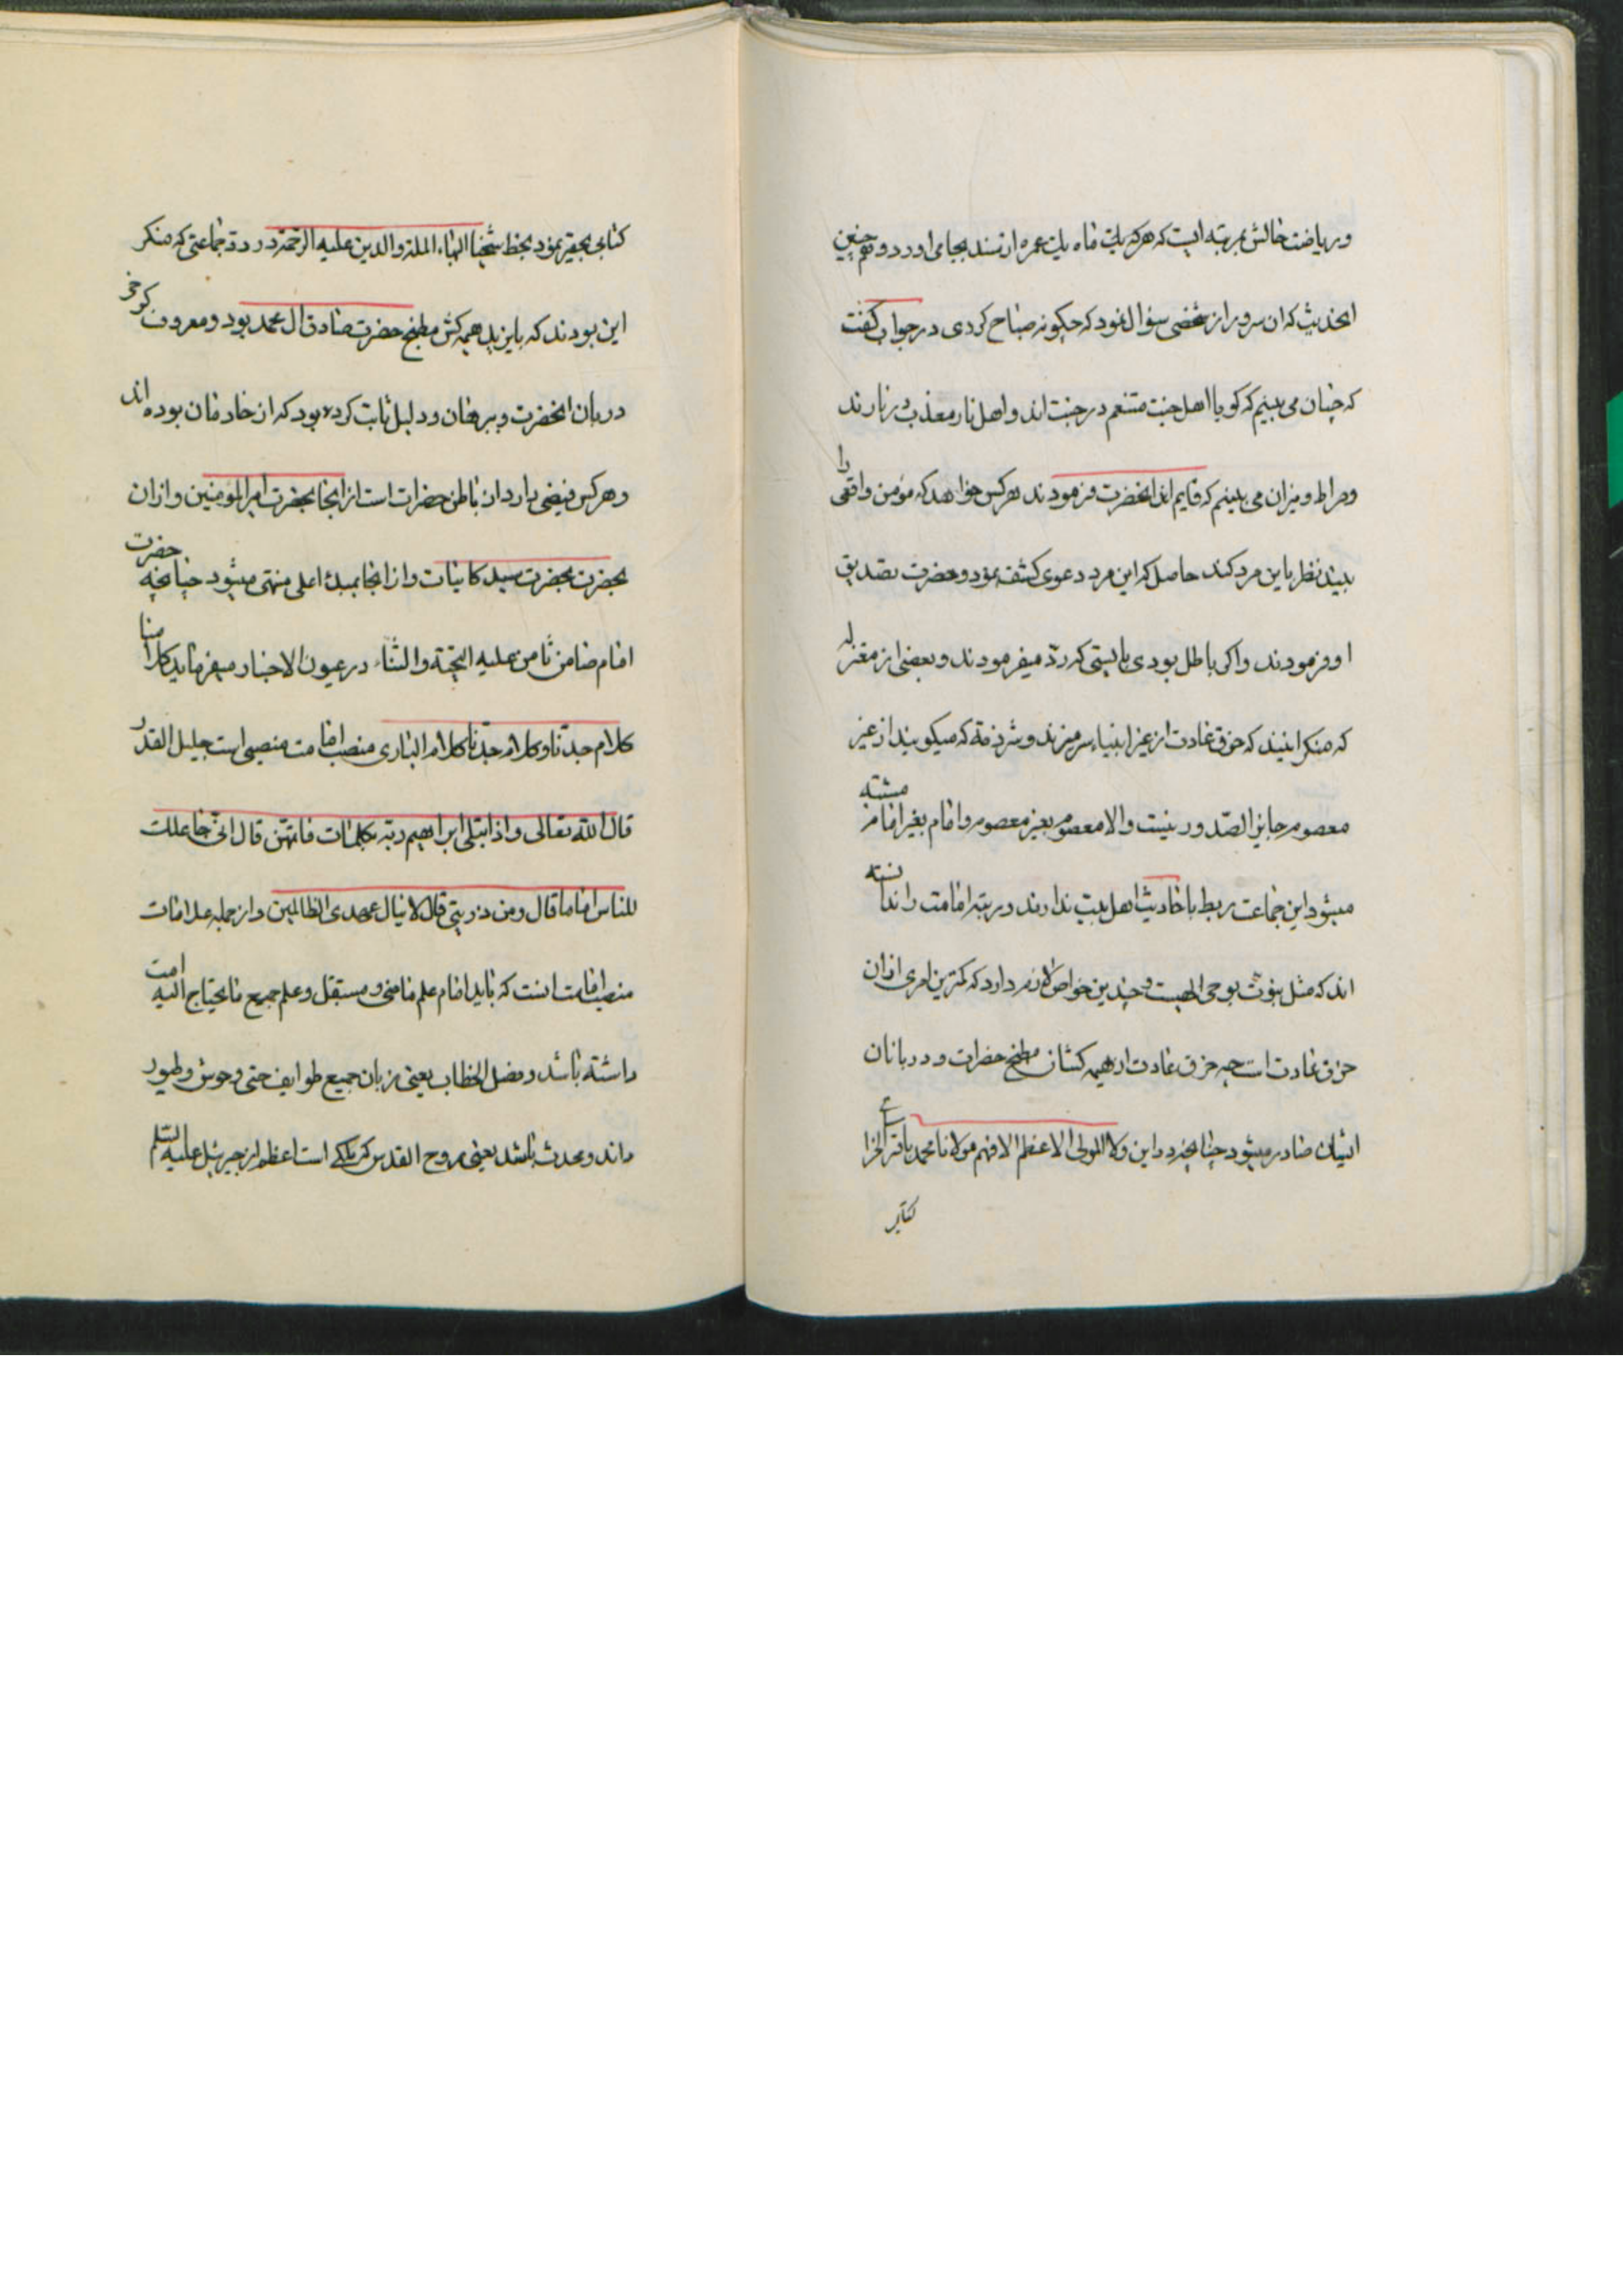 و ریاضت خالش بمرتبه ایست که هرکه یک ماه یک عمره از نسند بجا می اورد و هم چنین
الحدیث که ان سرور از شخصی سؤال نمود که چکونه صباح کردی در جواب کفت
که چنان می بینم که کویا اهل جنت متنعم در جنت اند و اهل نار معذب در نارند
و صراط و میزان می بینم که قایم اند انحضرت فرمودند هرکس خواهد که مؤمن واقعی را
بیند نظر باین مرد کند حاصل که این مرد دعوی کشف نمود و حضرت تصدیق
او فرمودند و اکر باطل بودی بایستی که رد میفرمودند و بعضی از معتزله
که منکر اینند که خرق عادت از غیر انبیاء سر میزند و شرذمه که میکویند از غیر
معصوم جایز الصدور نیست و الا معصوم بغیر معصوم و امام بغیر امام مشتبه
میشود این جماعت ربط باحادیث اهل بیت ندارند و رتبه امامت را ندانسته
اند که مثل نبوت بوحی الهیست و چندین خواص لازم دارد که کمترین امری ازان
خرق عادت است چه خرق عادت از هیمه کشان مطبخ حضرات و دربانان
ایشان صادر میشود چنانچه در این ولا المولی الاعظم الافهم مولانا محمد باقر الخرا ع
کتابی
کتابی بحقیر نمود بخط شیخنا البهاء الملة و الدین علیه الرحمة در رد جماعتی که منکر
این بودند که بایزید هیمه کش مطبخ حضرت صادق ال محمد بود و معروف کرخی
دربان انحضرت و ببرهان و دلیل ثابت کرده بود که از خادمان بوده اند
و هرکس فیضی دارد ان باطن حضرات است از انجا بحضرت امیر المؤمنین و ازان
بحضرت بحضرت سید کاینات و از انجا بمبدء اعلی منتهی میشود چنانچه حضرت
امام ضامن ثامن علیه التحیة و الثناء در عیون الاخبار میفرماید کلامنا
کلام جدنا و کلام جدنا کلام الباری منصب امامت منصبی است جلیل القدر
قال الله تعالی و اذ ابتلی ابراهیم ربه بکلمات فاتمهن قال انی جاعلک
للناس اماما قال و من ذریتی قال لا ینال عهدی الظالمین و از جمله علامات
منصب امامت انست که باید امام علم ماضی و مستقبل و علم جمیع ما یحتاج الیه امت
داشته باشد و فصل الخطاب یعنی زبان جمیع طوایف حتی وحوش و طیور
داند و محدث باشد یعنی بروح القدس که ملکی است اعظم از جبرئیل علیه السلم